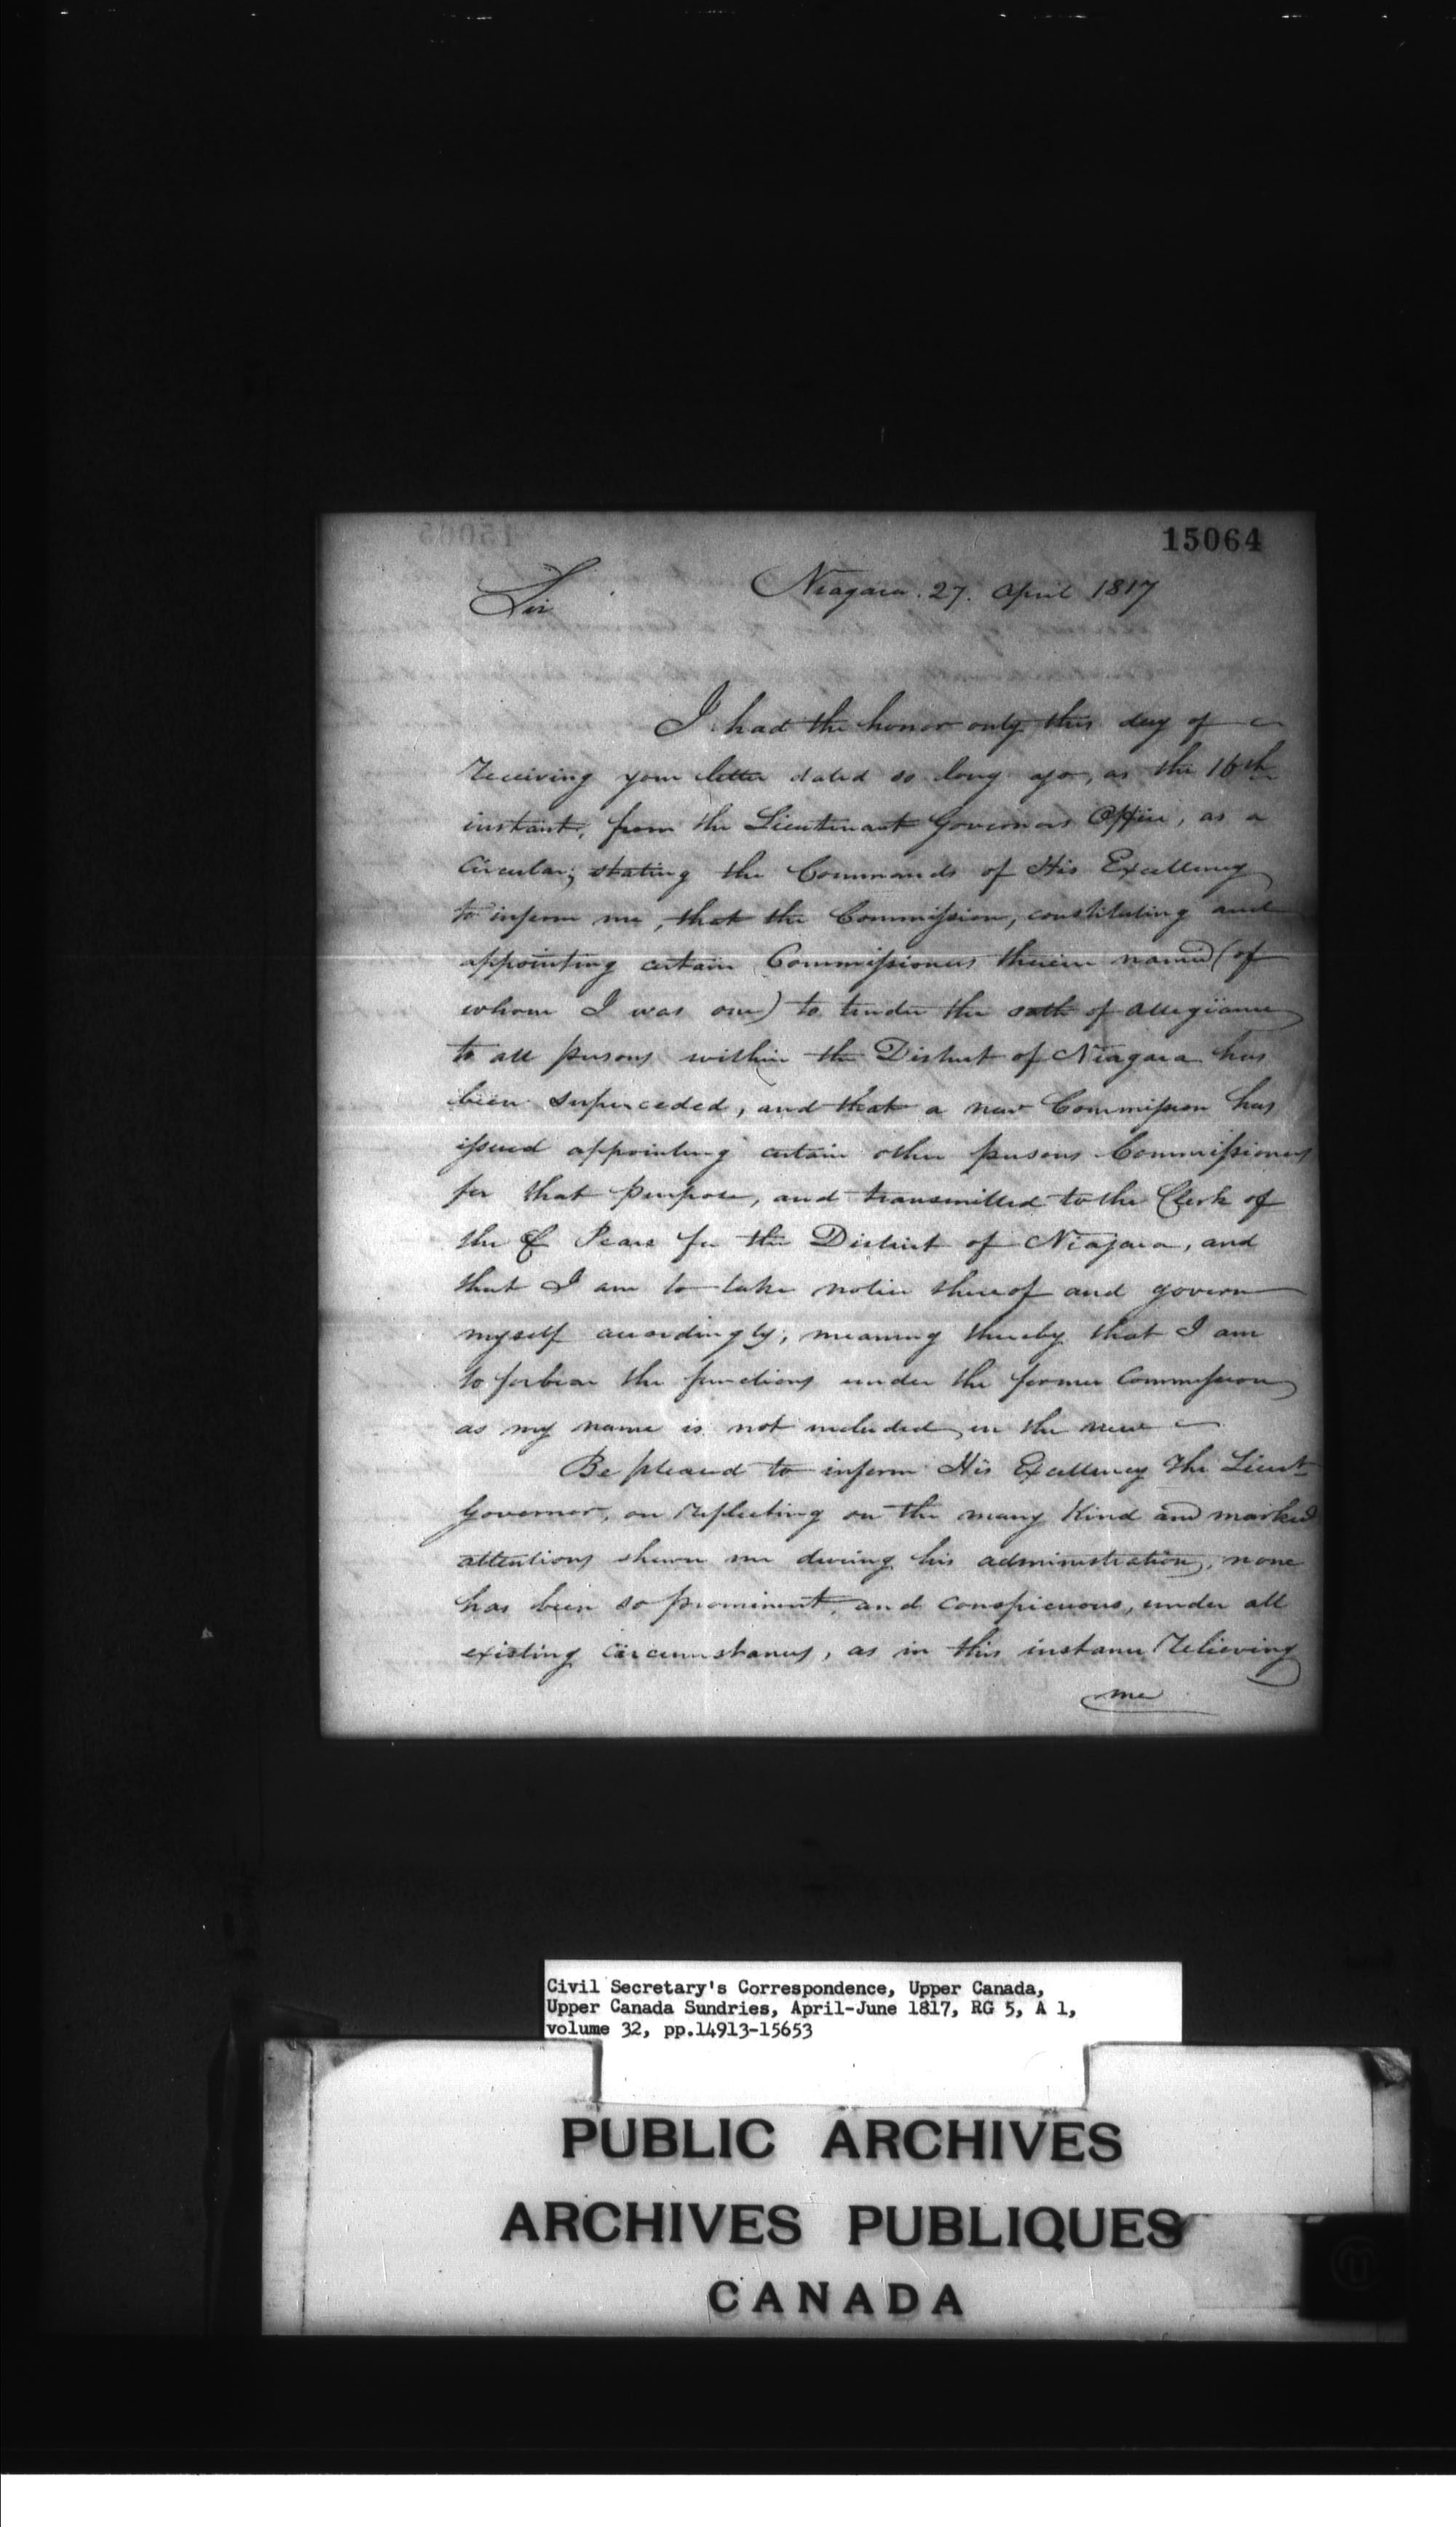 15064
Sir
Niagara. 27. April 1817
I had the honor only this day of
receiving your letter dated so long ago, as the 16th
instant, from the Lieutenant Governors Office, as a
Circular; stating the Commands of His Excellency
to inform me, that the Commission, constituting and
appointing certain Commissioners therein named (of
whom I was one) to tender the oath of allegiance
to all persons within the District of Niagara has
been superceded, and that a new Commission has
issued appointing certain other persons Commissioners
for that purpose, and transmitted to the Clerk of
the Peace for the District of Niagara, and
that I am to take notice thereof and govern
myself accordingly; meaning thereby that I am
to forbear the functions under the former Commission
as my name is not included in the new
Be pleased to inform His Excellency The Lieut
Governor, on reflecting on the many Kind and marked
attentions shewn me during his administration, none
has been so prominent, and conspicuous, under all
existing circumstances, as in this instance relieving
me
Civil Secretary's Correspondence, Upper Canada,
Upper Canada Sundries, April-June 1817, RG 5, A 1,
volume 32, pp.14913-15653
PUBLIC ARCHIVES
ARCHIVES PUBLIQUES
CANADA